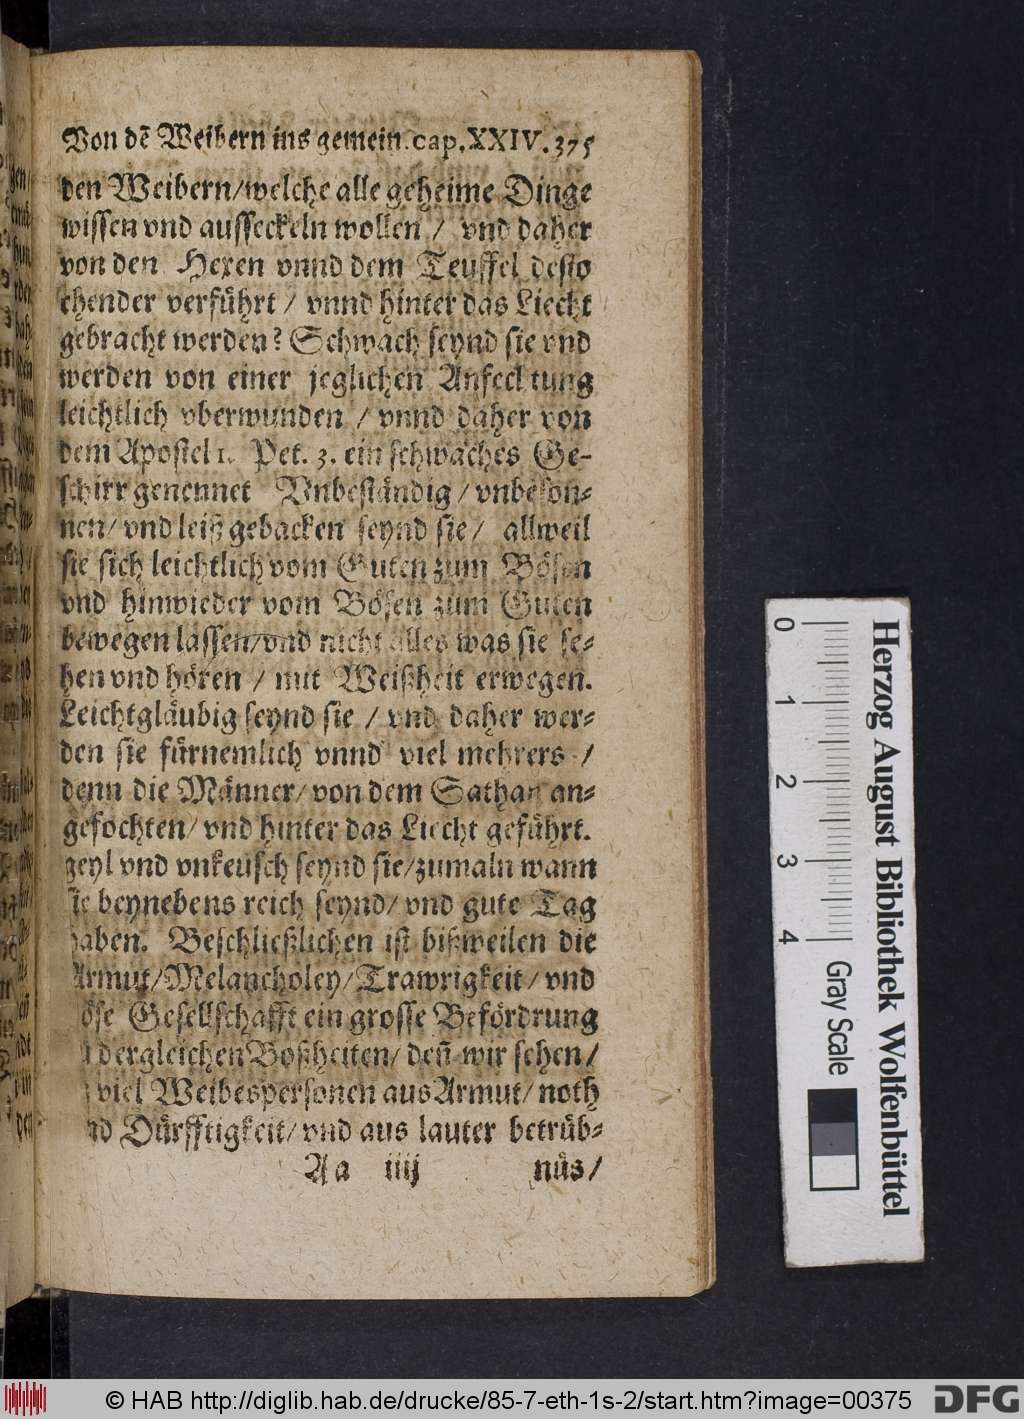 Von dẽ Weibern ins gemein. cap. XXIV. 375
den Weibern/welche alle geheime Dinge
wissen vnd ausseckeln wollen / vnd daher
von den Hexen vnnd dem Teuffel desto
ehender verführt / vnnd hinter das Liecht
gebracht werden? Schwach seynd sie vnd
werden von einer jeglichen Anfechtung
leichtlich vberwunden / vnnd daher von
dem Apostel 1. Pet. 3. ein schwaches Ge-
schirr genennet Vnbeständig / vnbeson-
nen/ vnd leiß gebacken seynd sie / allweil
sie sich leichtlich vom Guten zum Bösen
vnd hinwieder vom Bösen zum Guten
bewegen lassen/vnd nicht alles was sie se-
hen vnd hören / mit Weißheit erwegen.
Leichtgläubig seynd sie / vnd daher wer-
den sie fürnemlich vnnd viel mehrers /
denn die Männer/ von dem Sathan an-
gefochten/ vnd hinter das Liecht geführt.
geyl vnd vnkeusch seynd sie/zumaln wann
sie beynebens reich seynd/ vnd gute Tag
haben. Beschließlichen ist bißweilen die
Armut/Melancholey/Trawrigkeit/ vnd
öse Gesellschafft ein grosse Befördrung
dergleichen Boßheiten/ deñ wir sehen/
viel Weibespersonen aus Armut/ noth
nd Dürfftigkeit/ vnd aus lauter betrüb-
Aa iiij nüs/
0 1 2 3 4 Gray Scale
Herzog August Bibliothek Wolfenbüttel
© HAB http://diglib.hab.de/drucke/85-7-eth-1s-2/start.htm?image=00375
DFG